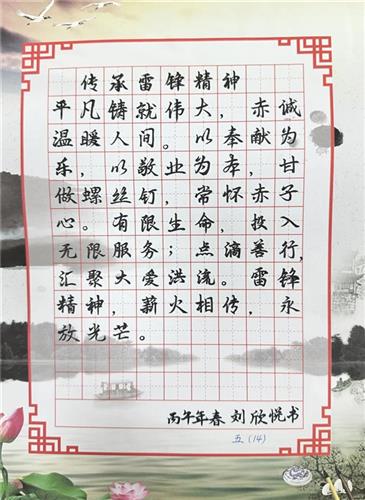 传承雷锋精神
平凡铸就伟大，赤诚
温暖人间。以奉献为
乐，以敬业为本，甘
做螺丝钉，常怀赤子
心。有限生命，投入
无限服务；点滴善行，
汇聚大爱洪流。雷锋
精神，薪火相传，永
放光芒。
丙午年春 刘欣悦书
五（14）